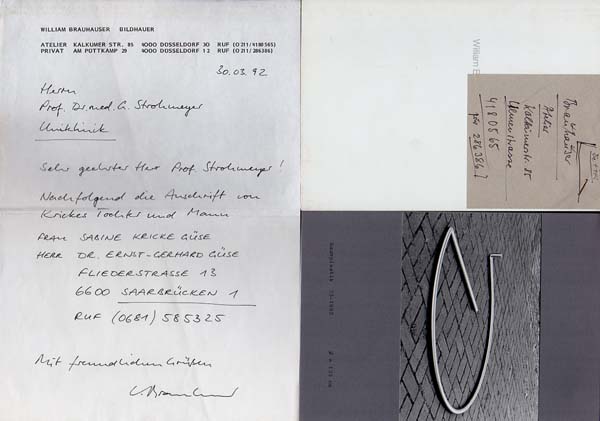 WILLIAM BRAUHAUSER BILDHAUER
ATELIER KALKUMER STR. 85 4000 DÜSSELDORF 30 RUF (0 211/4180565)
PRIVAT AM PÜTTKAMP 29 4000 DÜSSELDORF 12 RUF (0 211/286386)
30.03.92
Herrn
Prof. Dr. med. G. Strohmeyer
Uniklinik
Sehr geehrter Herr Prof. Strohmeyer!
Nachfolgend die Anschrift von
Krickes Tochter und Mann
FRAU SABINE KRICKE GÜSE
HERR DR. ERNST-GERHARD GÜSE
FLIEDERSTRASSE 13
6600 SAARBRÜCKEN 1
RUF (0681) 585325
Mit freundlichen Grüßen
W. Brauhauser
William B
Brauhauser
Atelier
Kalkumerstr. 85
Ulmenstrasse
4180565
286386
Raumplastik